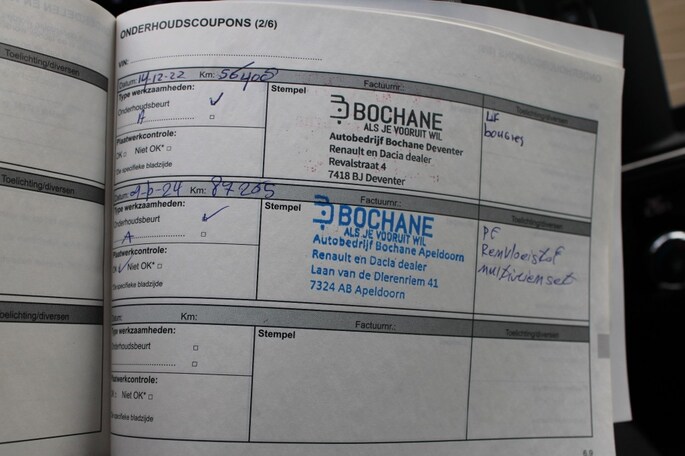 ONDERHOUDSCOUPONS (2/6)
VIN:
Toelichting/diversen
Datum: 14-12-22 Km: 56408 Factuurnr.: Toelichting/diversen
Type werkzaamheden:
Onderhoudsbeurt ✓
A
Plaatwerkcontrole:
OK □ Niet OK* □
Zie specifieke bladzijde
Stempel
BOCHANE
ALS JE VOORUIT WIL
Autobedrijf Bochane Deventer
Renault en Dacia dealer
Revalstraat 4
7418 BJ Deventer
LIF
bougies
Toelichting/diversen
Datum: Km: 87265 Factuurnr.: Toelichting/diversen
Type werkzaamheden:
Onderhoudsbeurt ✓
A
Plaatwerkcontrole:
OK ✓ Niet OK* □
Zie specifieke bladzijde
Stempel
BOCHANE
ALS JE VOORUIT WIL
Autobedrijf Bochane Apeldoorn
Renault en Dacia dealer
Laan van de Dierenriem 41
7324 AB Apeldoorn
PF
Remvloeistof
multiriemset
Toelichting/diversen
Datum: Km: Factuurnr.: Toelichting/diversen
Type werkzaamheden:
Onderhoudsbeurt □
□
Plaatwerkcontrole:
OK □ Niet OK* □
Zie specifieke bladzijde
Stempel
6.9